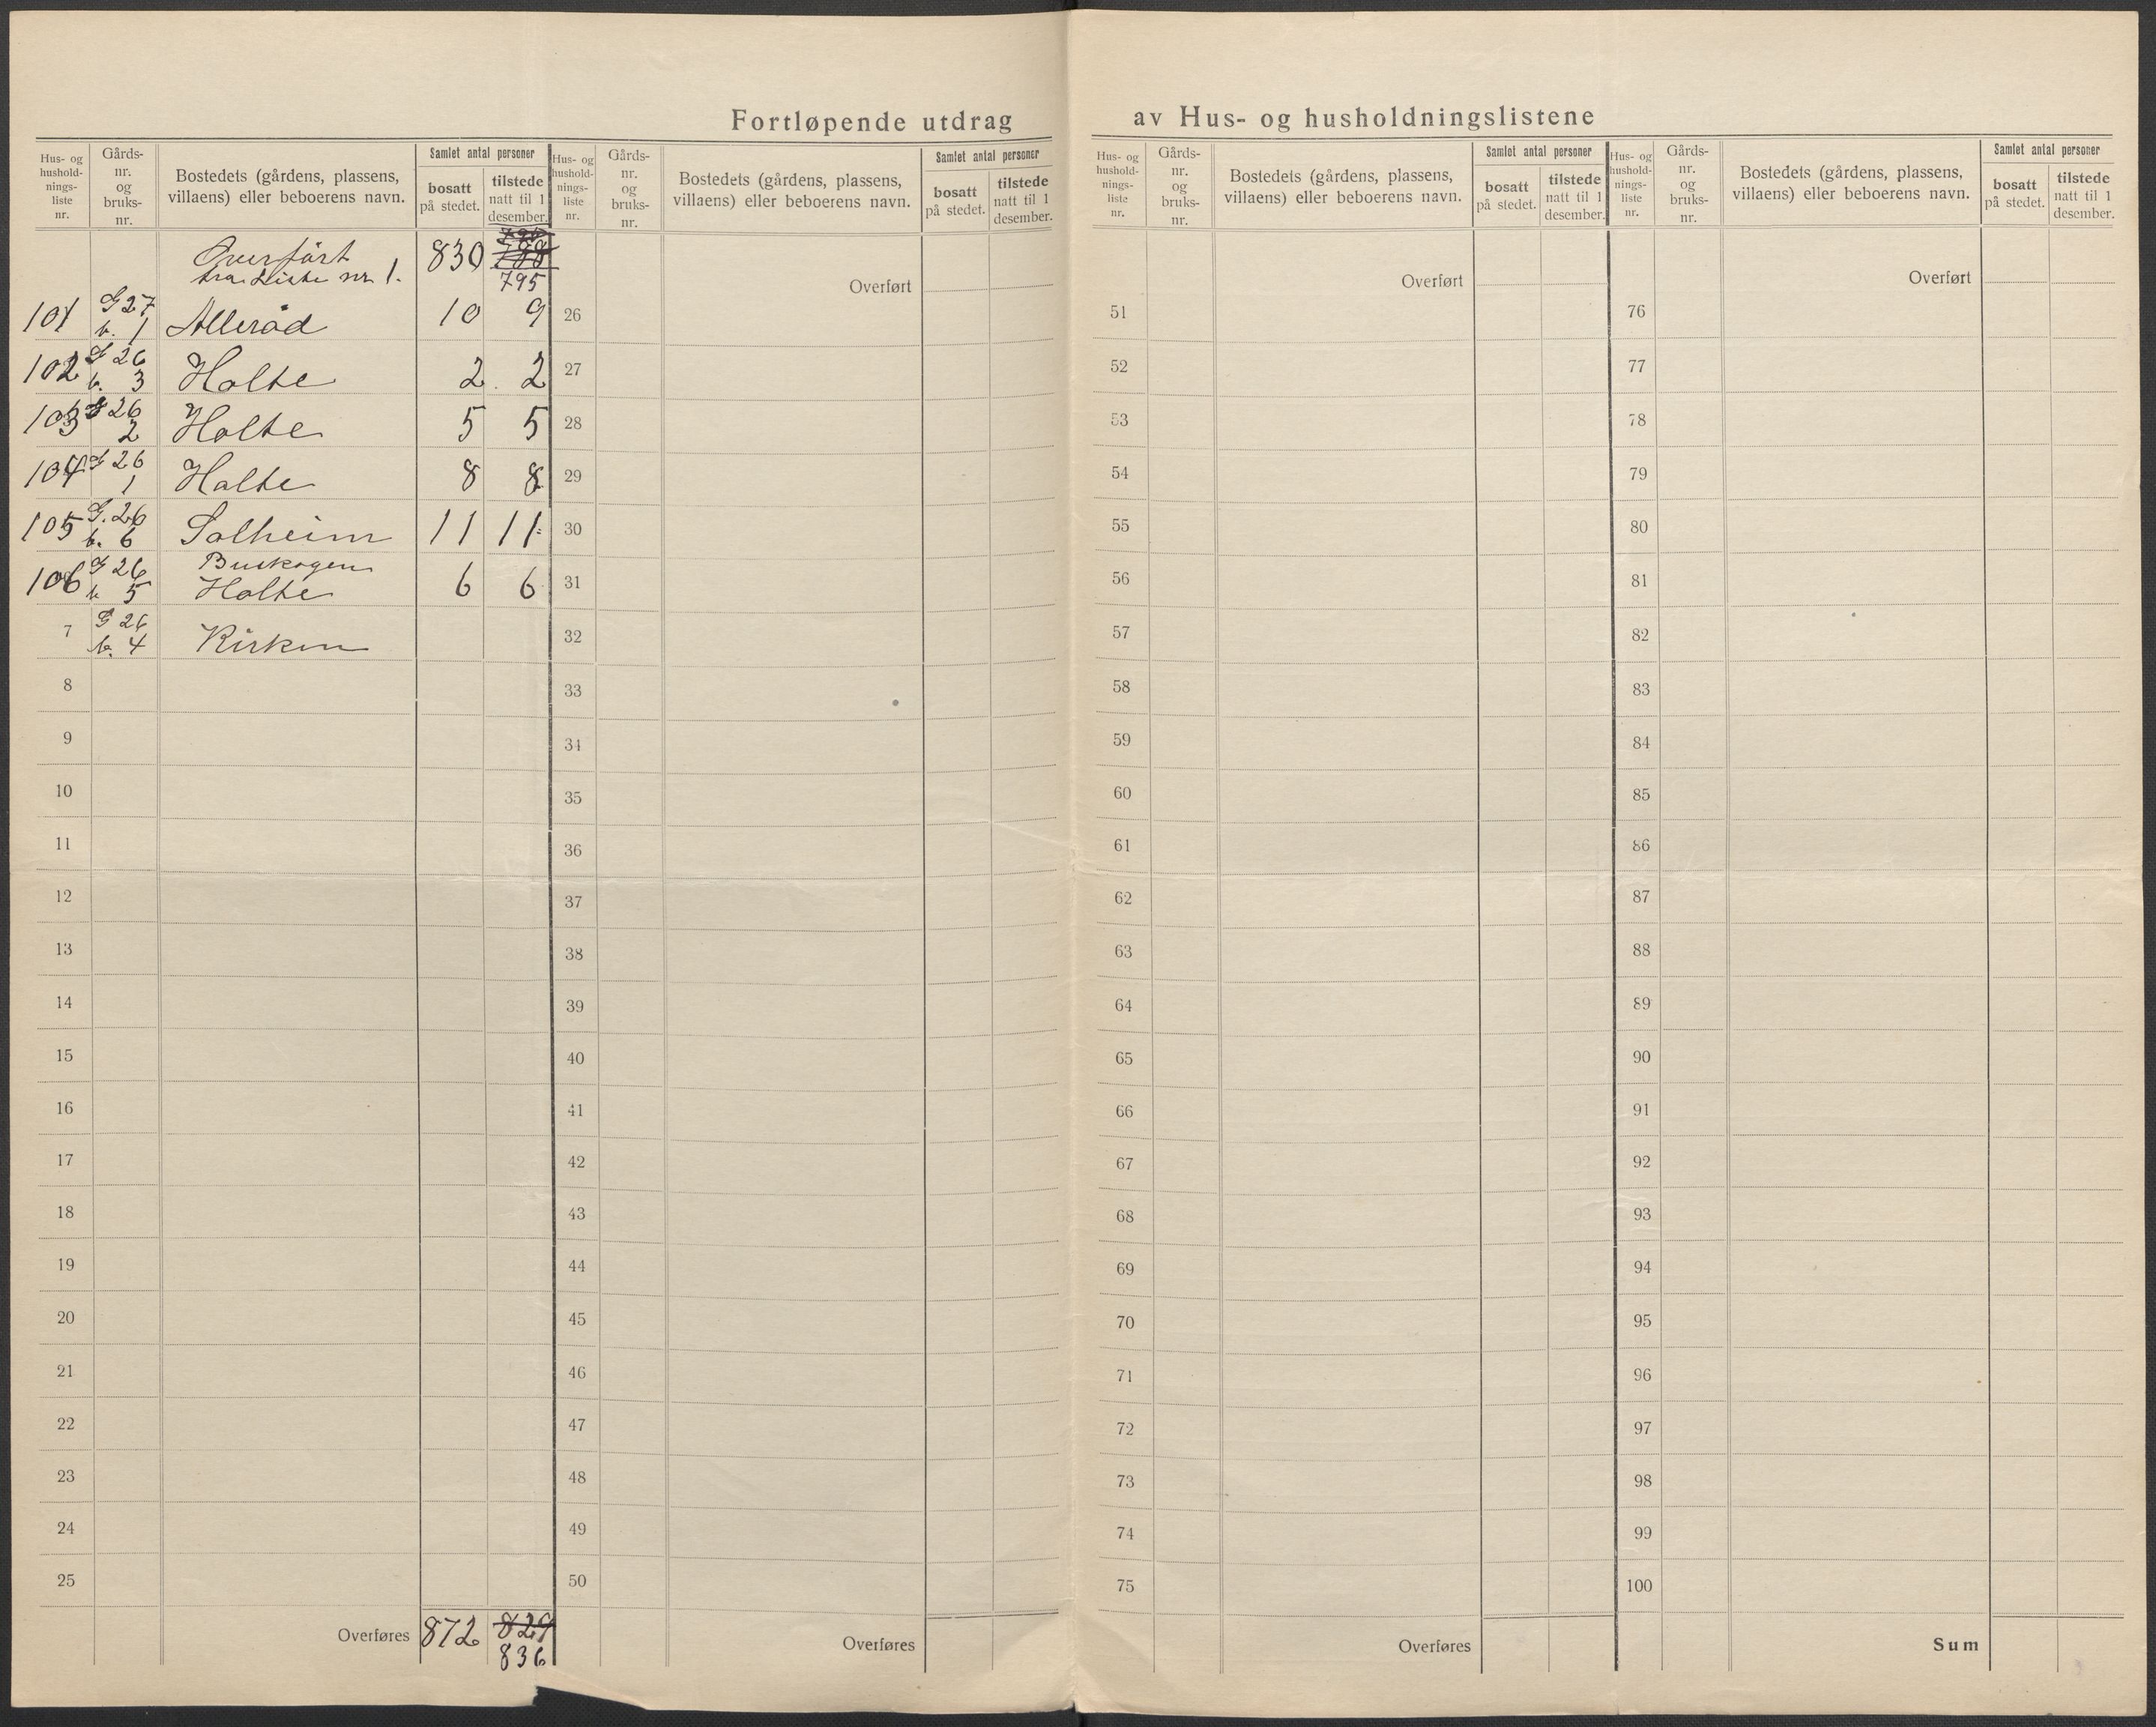 Fortløpende utdrag av Hus- og husholdningslistene
Hus- og
hushold-
nings-
liste
nr.
Gårds-
nr.
og
bruks-
nr.
Bostedets (gårdens, plassens,
villaens) eller beboerens navn.
Samlet antal personer
bosatt
på stedet.
tilstede
natt til 1
desember.
Overført
fra Liste nr 1. 830 788
795
101 G 27 b. 1 Allerød 10 9
102 G 26 b. 3 Holte 2 2
103 G 26 2 Holte 5 5
104 G 26 1 Holte 8 8
105 G. 26 b. 6 Solheim 11 11
106 G 26 b. 5 Buskogen
Holte 6 6
7 G 26 b. 4 Kirken
8
9
10
11
12
13
14
15
16
17
18
19
20
21
22
23
24
25
Overføres 872 829
836
Hus- og
hushold-
nings-
liste
nr.
Gårds-
nr.
og
bruks-
nr.
Bostedets (gårdens, plassens,
villaens) eller beboerens navn.
Samlet antal personer
bosatt
på stedet.
tilstede
natt til 1
desember.
Overført
26
27
28
29
30
31
32
33
34
35
36
37
38
39
40
41
42
43
44
45
46
47
48
49
50
Overføres
Hus- og
hushold-
nings-
liste
nr.
Gårds-
nr.
og
bruks-
nr.
Bostedets (gårdens, plassens,
villaens) eller beboerens navn.
Samlet antal personer
bosatt
på stedet.
tilstede
natt til 1
desember.
Overført
51
52
53
54
55
56
57
58
59
60
61
62
63
64
65
66
67
68
69
70
71
72
73
74
75
Overføres
Hus- og
hushold-
nings-
liste
nr.
Gårds-
nr.
og
bruks-
nr.
Bostedets (gårdens, plassens,
villaens) eller beboerens navn.
Samlet antal personer
bosatt
på stedet.
tilstede
natt til 1
desember.
Overført
76
77
78
79
80
81
82
83
84
85
86
87
88
89
90
91
92
93
94
95
96
97
98
99
100
Sum